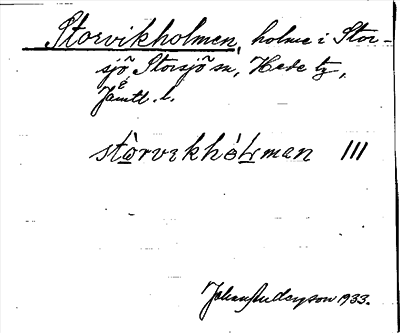 Storvikholmen, holme i Stor-
sjö, Storsjö sn, Hede tg,
Jämtl. l.
III
Johan Anderson 1933.